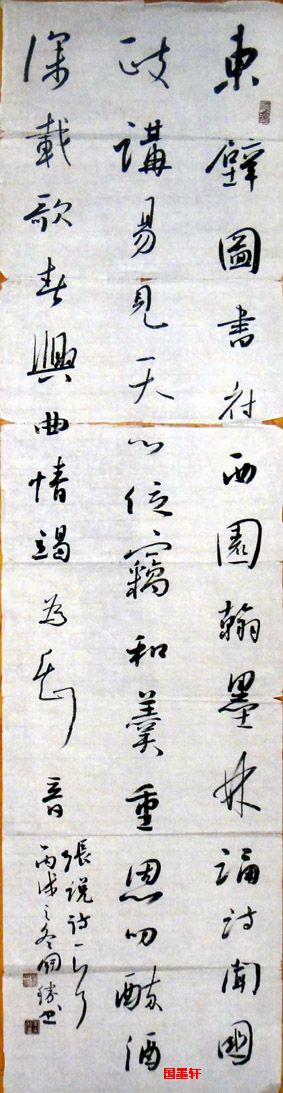 東壁圖書府西園翰墨林誦詩聞國
政講易見天心位竊和羹重恩叨醉酒
深載歌春興曲情竭為知音
張説詩一首
丙戌之冬書
国墨轩